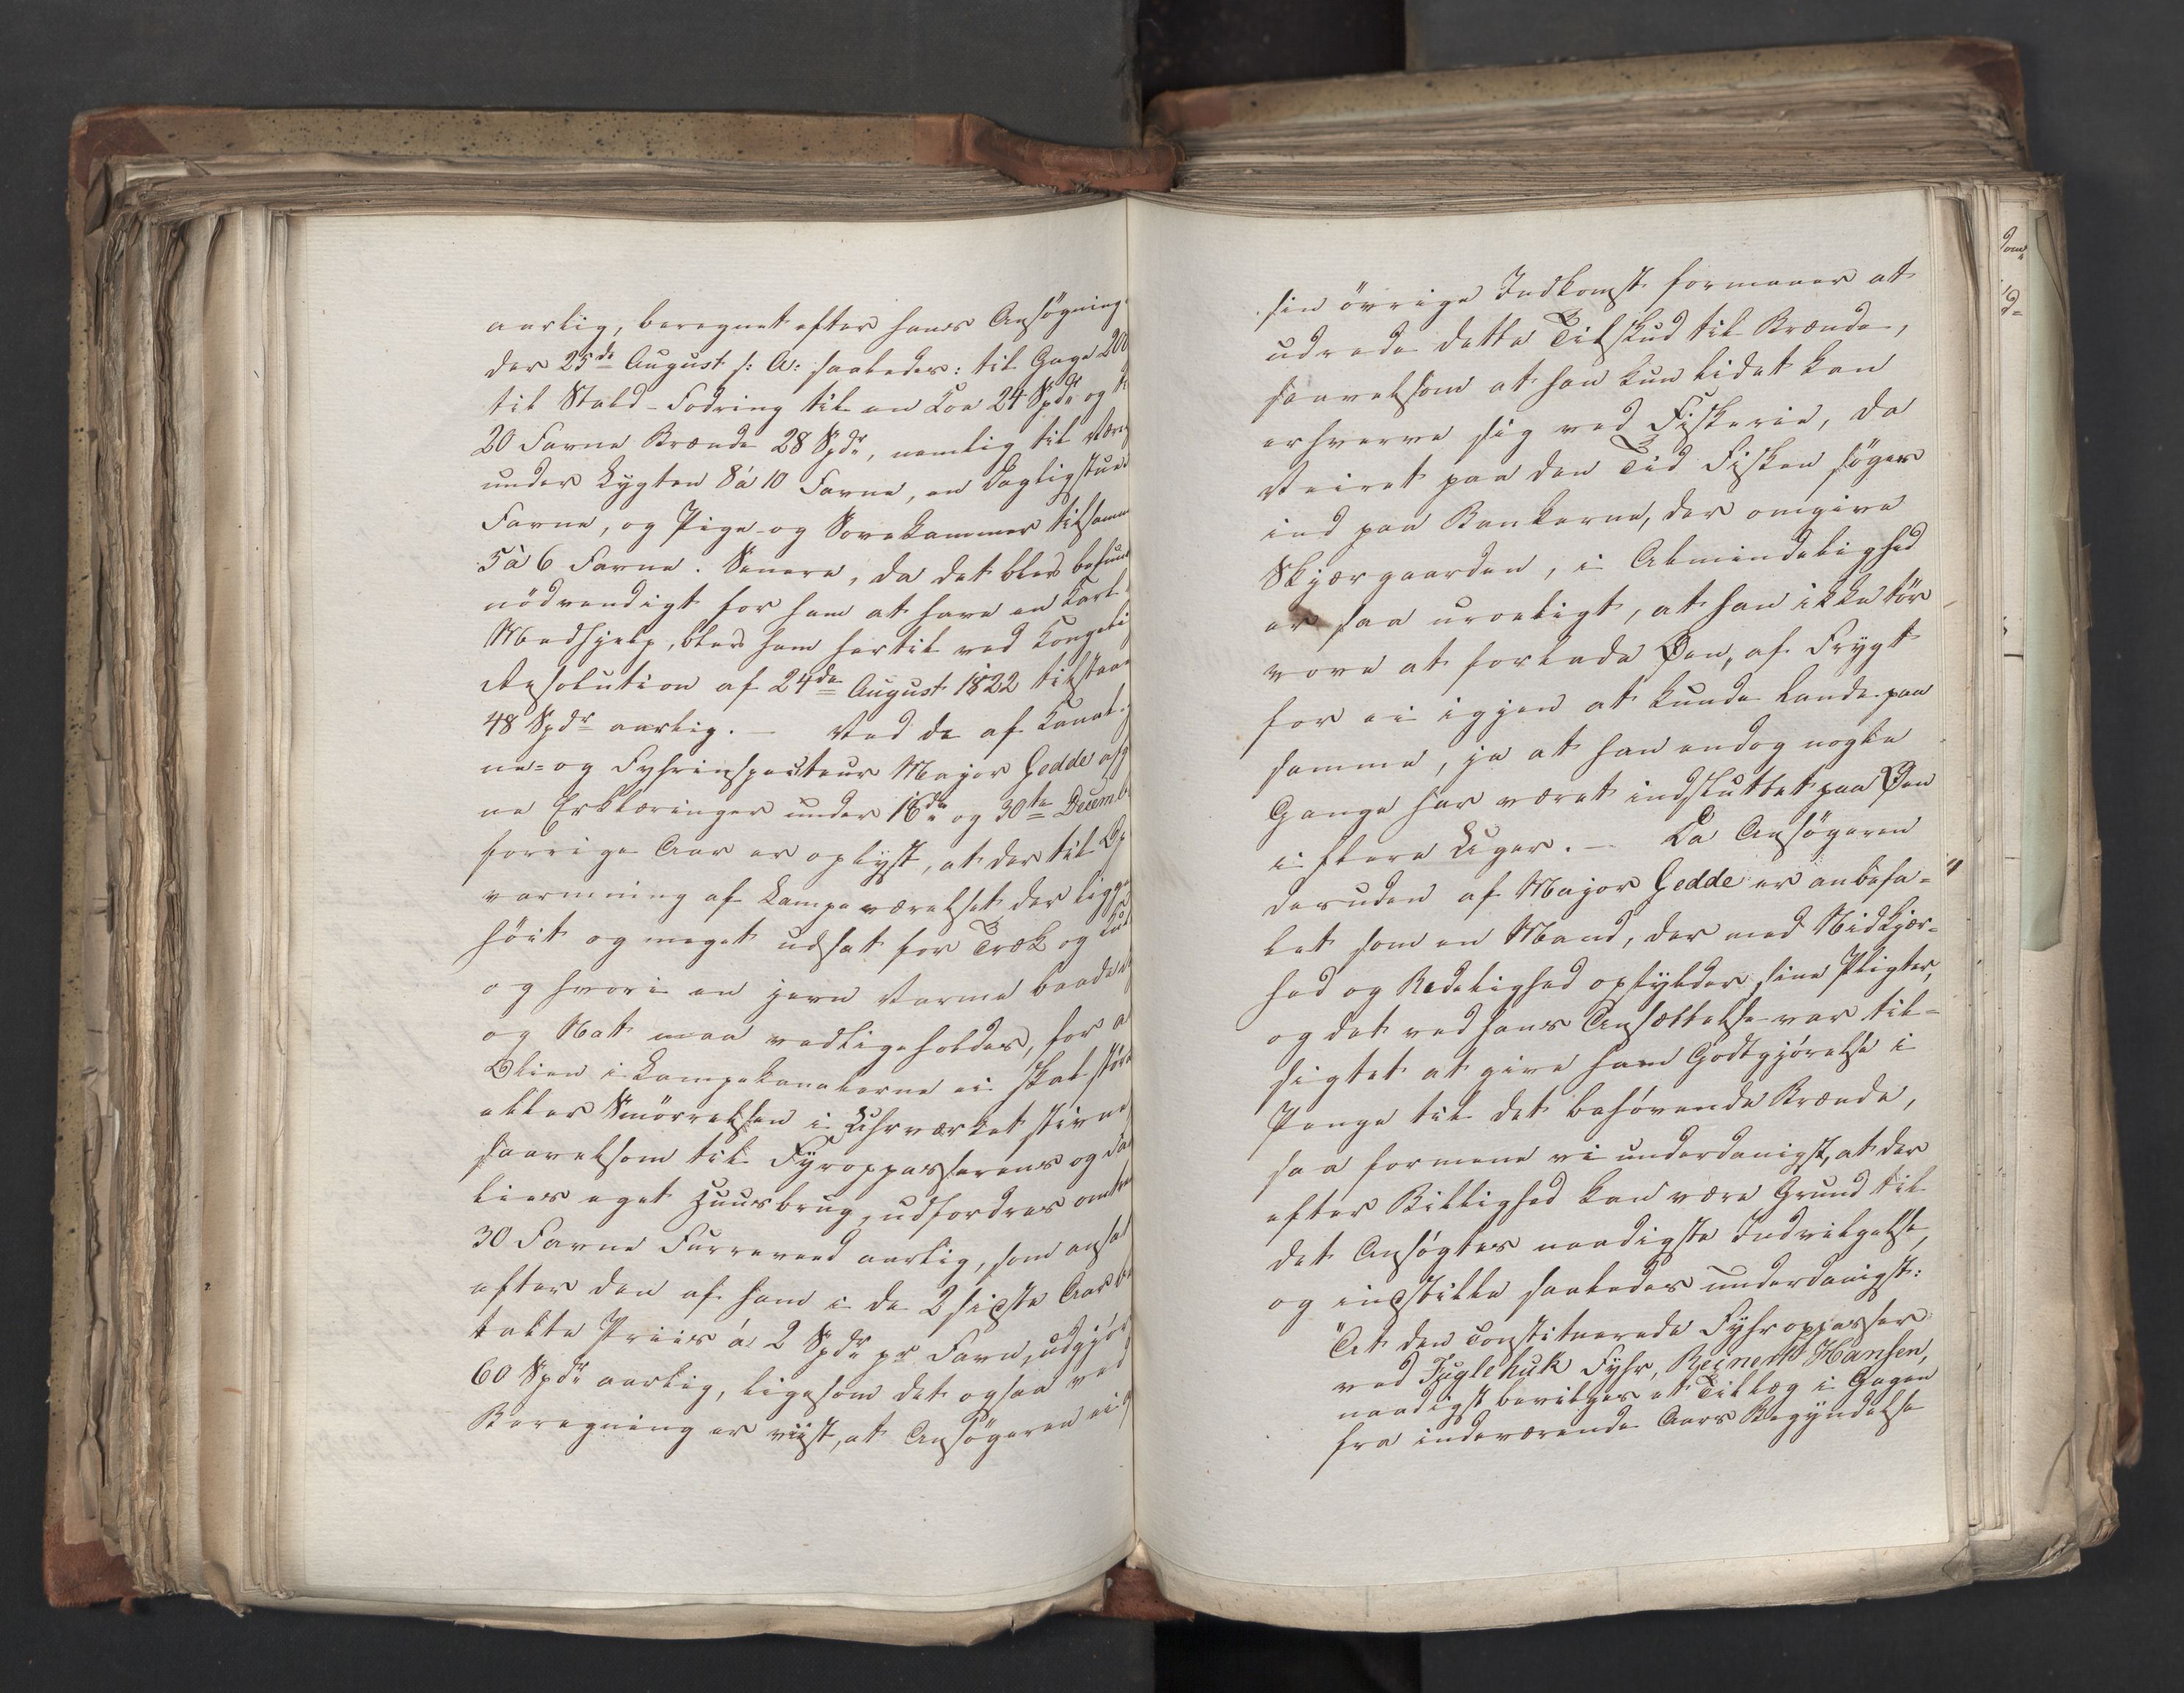 aarlig, beregnet efter hans Ansøgning
der 25de August s: A: saaledes: til Gage 200
til Stald-Fodring til en Koe 24 Spdr og
20 Favne Brænde 28 Spdr, nemlig til Være
under Lygten 8 á 10 Favne, en Dagligstue
Favne, og Pige- og Sovekammer tilsamm
5 à 6 Favne. Senere, da det blev befun
nödvendigt for ham at have en Karl
Medhjelp, blev ham hertil ved Kongeli
Resolution af 24de August 1822 tilstaa
48 Spdr aarlig. — Ved de af Canal
ne- og Fyhrinspecteur Major Gedde afg
ne Erklæringer under 16de og 30te Decemb
forrige Aar er oplyst, at der til Op
varmning af Lampeværelset der ligge
höit og meget udsat for Træk og Kul
og hvori en jevn Varme baade
og Nat maa vedligeholdes, for a
Olien i Lampekanalerne ei skal större
eller Smörrelsen i Uhrværket stivne
saavelsom til Fyroppasserens og Fa
lies eget Huusbrug, udfordres omtre
30 Favne Furreveed aarlig, som ansat
efter den af ham i de 2 sidste Aar be
talte Priis á 2 Spdr pr Favn, udgjör
60 Spdr aarlig, ligesom det ogsaa ved
Beregning er viist, at Ansögeren ei
sin övrige Indkomst formaaer at
udrede dette Tilskud til Brænde,
saavelsom at han kun lidet kan
erhverve sig ved Fiskerie, da
Veiret paa den Tid Fisken söger
ind paa Bankerne, der omgive
Skjærgaarden, i Almindelighed
er saa uroeligt, at han ikke tör
vove at forlade Øen, af Frygt
for ei igjen at kunde lande paa
samme, ja at han endog nogle
Gange har været indsluttet paa Øen
i flere Uger. — Da Ansögeren
desuden af Major Gedde er anbefa-
let som en Mand, der med Nidkjær-
hed og Redelighed opfylder sine Pligter,
og det ved hans Ansættelse var til-
sigtet at give ham Godtgjörelse i
Penge til det behövende Brænde,
saa formene vi underdanigst, at der
efter Billighed kan være Grund til
det Ansögtes naadigste Indvilgelse,
og indstille saaledes underdanigst:
"At den constituerede Fyhroppasser
ved Fuglehuk Fyhr, Reinert Hansen,
naadigst bevilges et Tillæg i Gagen
fra indeværende Aars Begyndelse